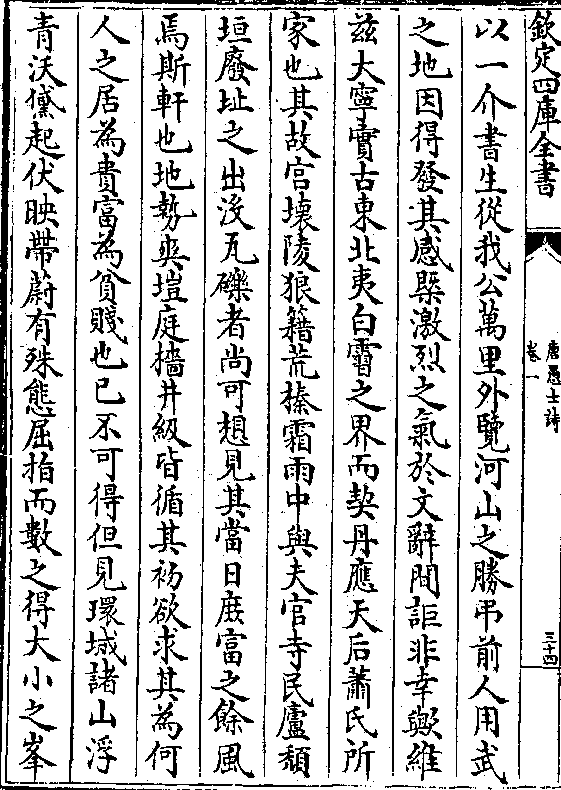 欽定四庫全書
唐愚士詩
卷一
三十四
以一介書生從我公萬里外覽河山之勝弔前人用武
之地因得發其感槩激烈之氣於文辭間詎非幸歟維
兹大寧實古東北夷白霫之界而契丹應天后蕭氏所
家也其故宫壊陵狼籍荒榛霜雨中與夫官寺民廬頽
垣廢址之出沒瓦礫者尚可想見其當日庶富之餘風
焉斯軒也地勢爽塏庭檣井級皆循其初欲求其為何
人之居為貴富為貧賤也已不可得但見環城諸山浮
青沃黛起伏映帶蔚有殊態屈指而數之得大小之峯